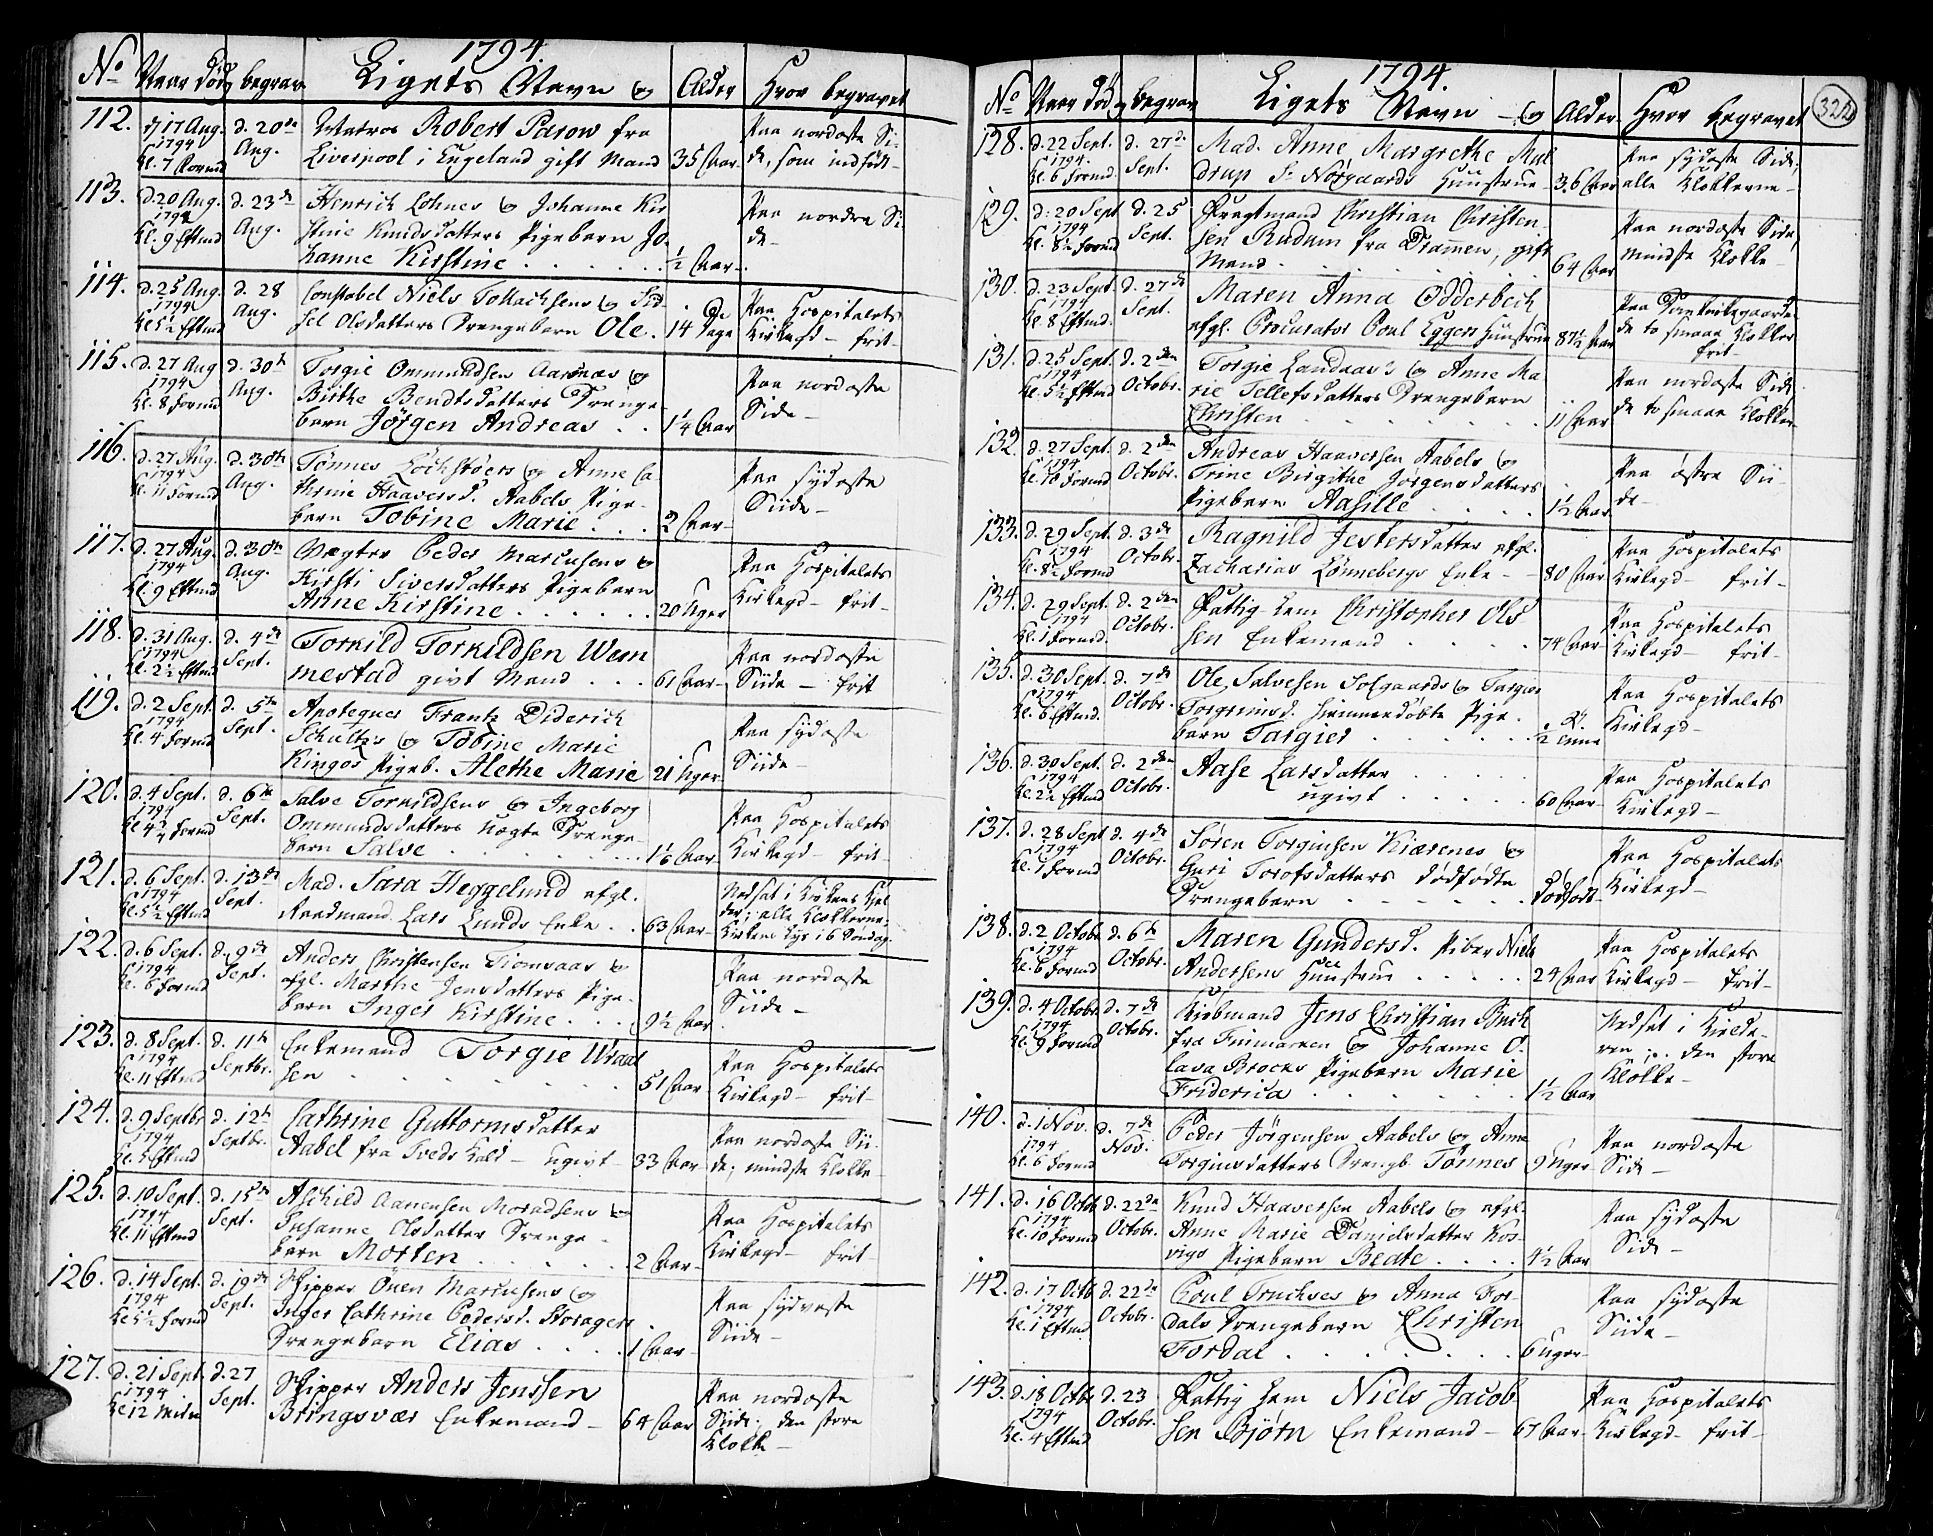 1794.
No Naar død, begrav. Ligets Navn og Alder Hvor begravet
112. d. 17 Aug. 1794 Kl. 7 Formd d. 20de Aug. Matros Robert Parow fra
Liverpool i Engeland gift Mand 35 Aar Paa nordoste Side, som indfødt
113. d. 20 Aug. 1794 Kl. 9 Eftmd d. 23de Aug. Henrich Lohnes og Johanne Kir
stine Knudsdatters Pigebarn Jo
hanne Kirstine ½ Aar Paa nordre Side
114. d. 25 Aug. 1794 Kl 5½ Eftmd d. 28 Aug. Constabel Niels Tollachsens og Sid
sel Olsdatters Drengebarn Ole. 14 Dage Paa Hospitalets Kirkegd frit
115. d. 27 Aug 1794 Kl. 8 Formd d. 30te Aug. Torgie Ommundsen Aarnæs og
Birthe Bendtsdatters Drenge
barn Jørgen Andreas 1¼ Aar Paa nordoste Side
116. d. 27 Aug. 1794 Kl. 11 Formd d. 30te Aug. Tønnes Lochstøers og Anne Ca
thrine Haaversd. Aabels Pige
barn Tobine Marie 2 Aar Paa sydoste Siide
117. d. 27 Aug. 1794 Kl. 9 Eftmd d. 30te Aug. Vægter Peder Marcusens og
Kirsti Siversdatters Pigebarn
Anne Kirstine 20 Uger Paa Hospitalets Kirkegd frit
118. d. 31 Aug. 1794 Kl. 2½ Eftmd d. 4de Sept. Torkild Torkildsen Wem
mestad givt Mand 61 Aar Paa nordoste Siide frit
119. d. 2 Sept. 1794 Kl. 4 Formd d. 5te Sept. Apoteqver Frantz Diderich
Schultz's og Tobine Marie
Kingos Pigeb. Alethe Marie 21 Uger Paa sydoste Siide
120. d. 4 Sept. 1794 Kl 4½ Formd d. 6te Sept. Salve Torkildsens og Ingeborg
Ommundsdatters uægte Drenge
barn Salve Aar Paa Hospitalets Kirkegd frit
121. d. 6 Sept. 1794 Kl. 5½ Eftmd d. 13de Sept. Mad. Sara Heggelund afgl.
Raadmand Lars Lunds Enke 63 Aar Nedsat i Kirkens Kiel
der; alle Klokkerne;
122. d. 6 Sept. 1794 Kl. 6 Formd d. 9de Sept. Anders Christensen Tiomsaas og
afgl. Marthe Jensdatters Pige
barn Inger Kirstine 9½ Aar Paa nordoste Siide
123. d. 8 Sept. 1794 Kl. 11 Eftmd d. 11te Septbr. Enkemand Torgie Wraal
sen 51 Aar Paa Hospitalets Kirkegd frit
124. d. 9 Septbr 1794 Eftmd d. 12te Septbr. Cathrine Guttormsdatter
Aabel fra Tveds Kald ugivt 33 Aar Paa nordoste Siide; mindste Klokke
125. d. 10 Sept. 1794 Kl. 11 Eftmd d. 15de Sept. Alchild Aanensen Moradsens og
Susanne Olsdatter Drenge
barn Morten 2 Aar Paa Hospitalets Kirkegd frit
126. d. 14 Sept. 1794 Kl 5½ Formd d. 19de Sept. Skipper Onen Marcusens og
Inger Cathrine Pedersd. Storagers
Drengebarn Elias 1 Aar Paa sydveste Siide
127. d. 21 Sept. 1794 Kl 12 Midn d. 27 Sept. Skipper Anders Jenssen
Bringsvær Enkemand 64 Aar Paa nordoste Siide; den store Klokke
1794.
322
No Naar død, begrav Ligets Navn og Alder Hvor begravet
128. d. 22 Sept. 1794 Kl. 6 Formd d. 27de Sept. Mad. Anne Margrethe Mal
drup Sr Nørgaards Huustrue 36 Aar Paa sydoste Side; alle Klokkerne
129. d. 20 Sept 1794 Kl. 8½ Formd d. 25 Sept. Fragtmand Christian Christen
sen Rudum fra Dramen, gift
Mand 64 Aar Paa nordoste Side, mindste Klokke
130. d. 23 Sept 1794 Kl. 8 Eftmd. d. 27de Sept. Maren Anna Odderbech
afgl. Procurator Poul Eggers Huustrue 87½ Aar de to smaae Klokker frit
131. d. 25 Sept. 1794 Kl. 5½ Eftmd d. 2den Octobr. Torgie Landaas's og Anne Ma
rie Tellefsdatters Drengebarn
Christen 11 Aar Paa nordoste Side de to smaae Klokker
132. d. 27 Sept. 1794 Kl. 10 Formd d. 2den Octobr. Andreas Haaversen Aabels og
Trine Birgithe Jørgensdatters
Pigebarn Aasille 1½ Aar Paa østre Siide
133. d. 29 Sept. 1794 Kl. 8½ Formd d. 3de Octobr. Ragnild Jestersdatter afgl.
Zacharias Lønnebergs Enke 80 Aar Paa Hospitalets Kirkegd frit
134. d. 29 Sept. 1794 Kl. 1 Formd. d. 2den Octobr. Fattig Lem Christopher Ols
sen Enkemand 74 Aar Paa Hospitalets Kirkegd frit
135. d. 30 Sept. 1794 Kl. 6 Eftmd. d. 7de Octobr. Ole Salvesen Solgaards og Targier
Torgrimsd. hiemmedøbte Pige
barn Targier ½ Time Paa Hospitalets Kirkegd
136. d. 30 Sept. 1794 Kl. 2½ Eftmd d. 2den Octobr. Aase Larsdatter
ugivt 60 Aar Paa Hospitalets Kirkegd
137. d. 28 Sept 1794 Kl. 1 Formd d. 4de Octobr. Søren Torginsen Kiærenes og
Guri Torofsdatters dødfødte
Drengebarn dødfødt Paa Hospitalets Kirkegd
138. d. 2 Octobr 1794 Kl. 6 Formd d. 6te Octobr. Maren Gundersd. Piber Niels
Andersens Huustrue 24 Aar Paa Hospitalets Kirkegd frit
139. d. 4 Octobr. 1794 Kl. 9 Formd d. 7de Octobr. Kiøbmand Jens Christian Buch
fra Finmarken og Johanne O
lava Brochs Pigebarn Marie
Friderica 1½ Aar Nedsat i Kielderen; den store Klokke
140. d. 1 Nov. 1794 Kl. 6 Formd d. 7de Nov. Peder Jørgensen Aabels og Anne
Torginsdatters Drengb. Tønnes 9 Uger Paa nordoste Side
141. d. 16 Octob 1794 Kl. 10 Formd d. 22de Octobr. Knud Haaversen Aabels og afgl.
Anne Marie Danielsdatter Kos
vigs Pigebarn Beate 4½ Aar Paa sydoste Side
142. d. 17 Octb 1794 Kl. 1 Eftmd d. 22de Octobr. Poul Truchses og Anna For
dals Drengebarn Christen
Fordal 6 Uger Paa sydoste Siide
143. d. 18 Octbr 1794 Kl. 4 Eftmd d. 23 Octobr. Fattig Lem Niels Jacob
sen Bjørn Enkemand 67 Aar Paa Hospitalets Kirkegd frit